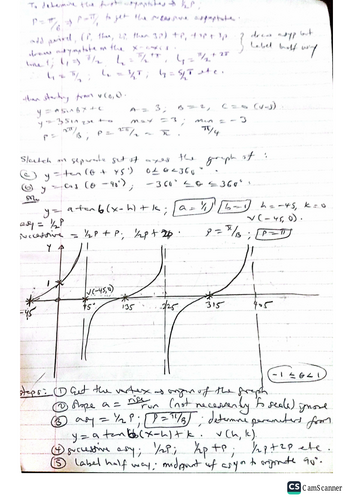 To determine the first asymptotes → ½P;
P = π/B, P = π/1 to get the successive asymptotes
add period, (P, then, 2P then 3P) + P, +2P + 3P
draw asymptotes on the x-axis.
draw asympt but label half way
then starting from v(2,0).
y = a sin bx + c  A = 3, B = 2, C = 0 (V-3)
y = 3 sin 2x + 0  max = 3; min = -3
π/4
Sketch on separate set of axes the graph of :
(a) y = tan(θ + 45°)  0 ≤ θ ≤ 360°
(b) y = cos(θ - 90°), -360° ≤ θ ≤ 360°.
y = a tan b(x-h) + k; a = 1/1 b = 1 h = -45, k = 0
asy = ½P v(-45,0).
successive = ½P + P, ½P + 2P P = π/B, P = π
y
1
v(-45,0)
-45 45° 135 225 315 405
-1 ≤ θ ≤ 1
Steps: ① Get the vertex as origin of the graph
② slope a = rise/run (not necessarily to scale) ignore
③ asy = ½P, P = π/B; determine parameters from
y = a tan b(x-h) + k. v(h,k)
④ successive asy, ½P, ½P+P, ½P+2P etc.
⑤ label half way, midpoint of asyn to originate 90°.
CS CamScanner